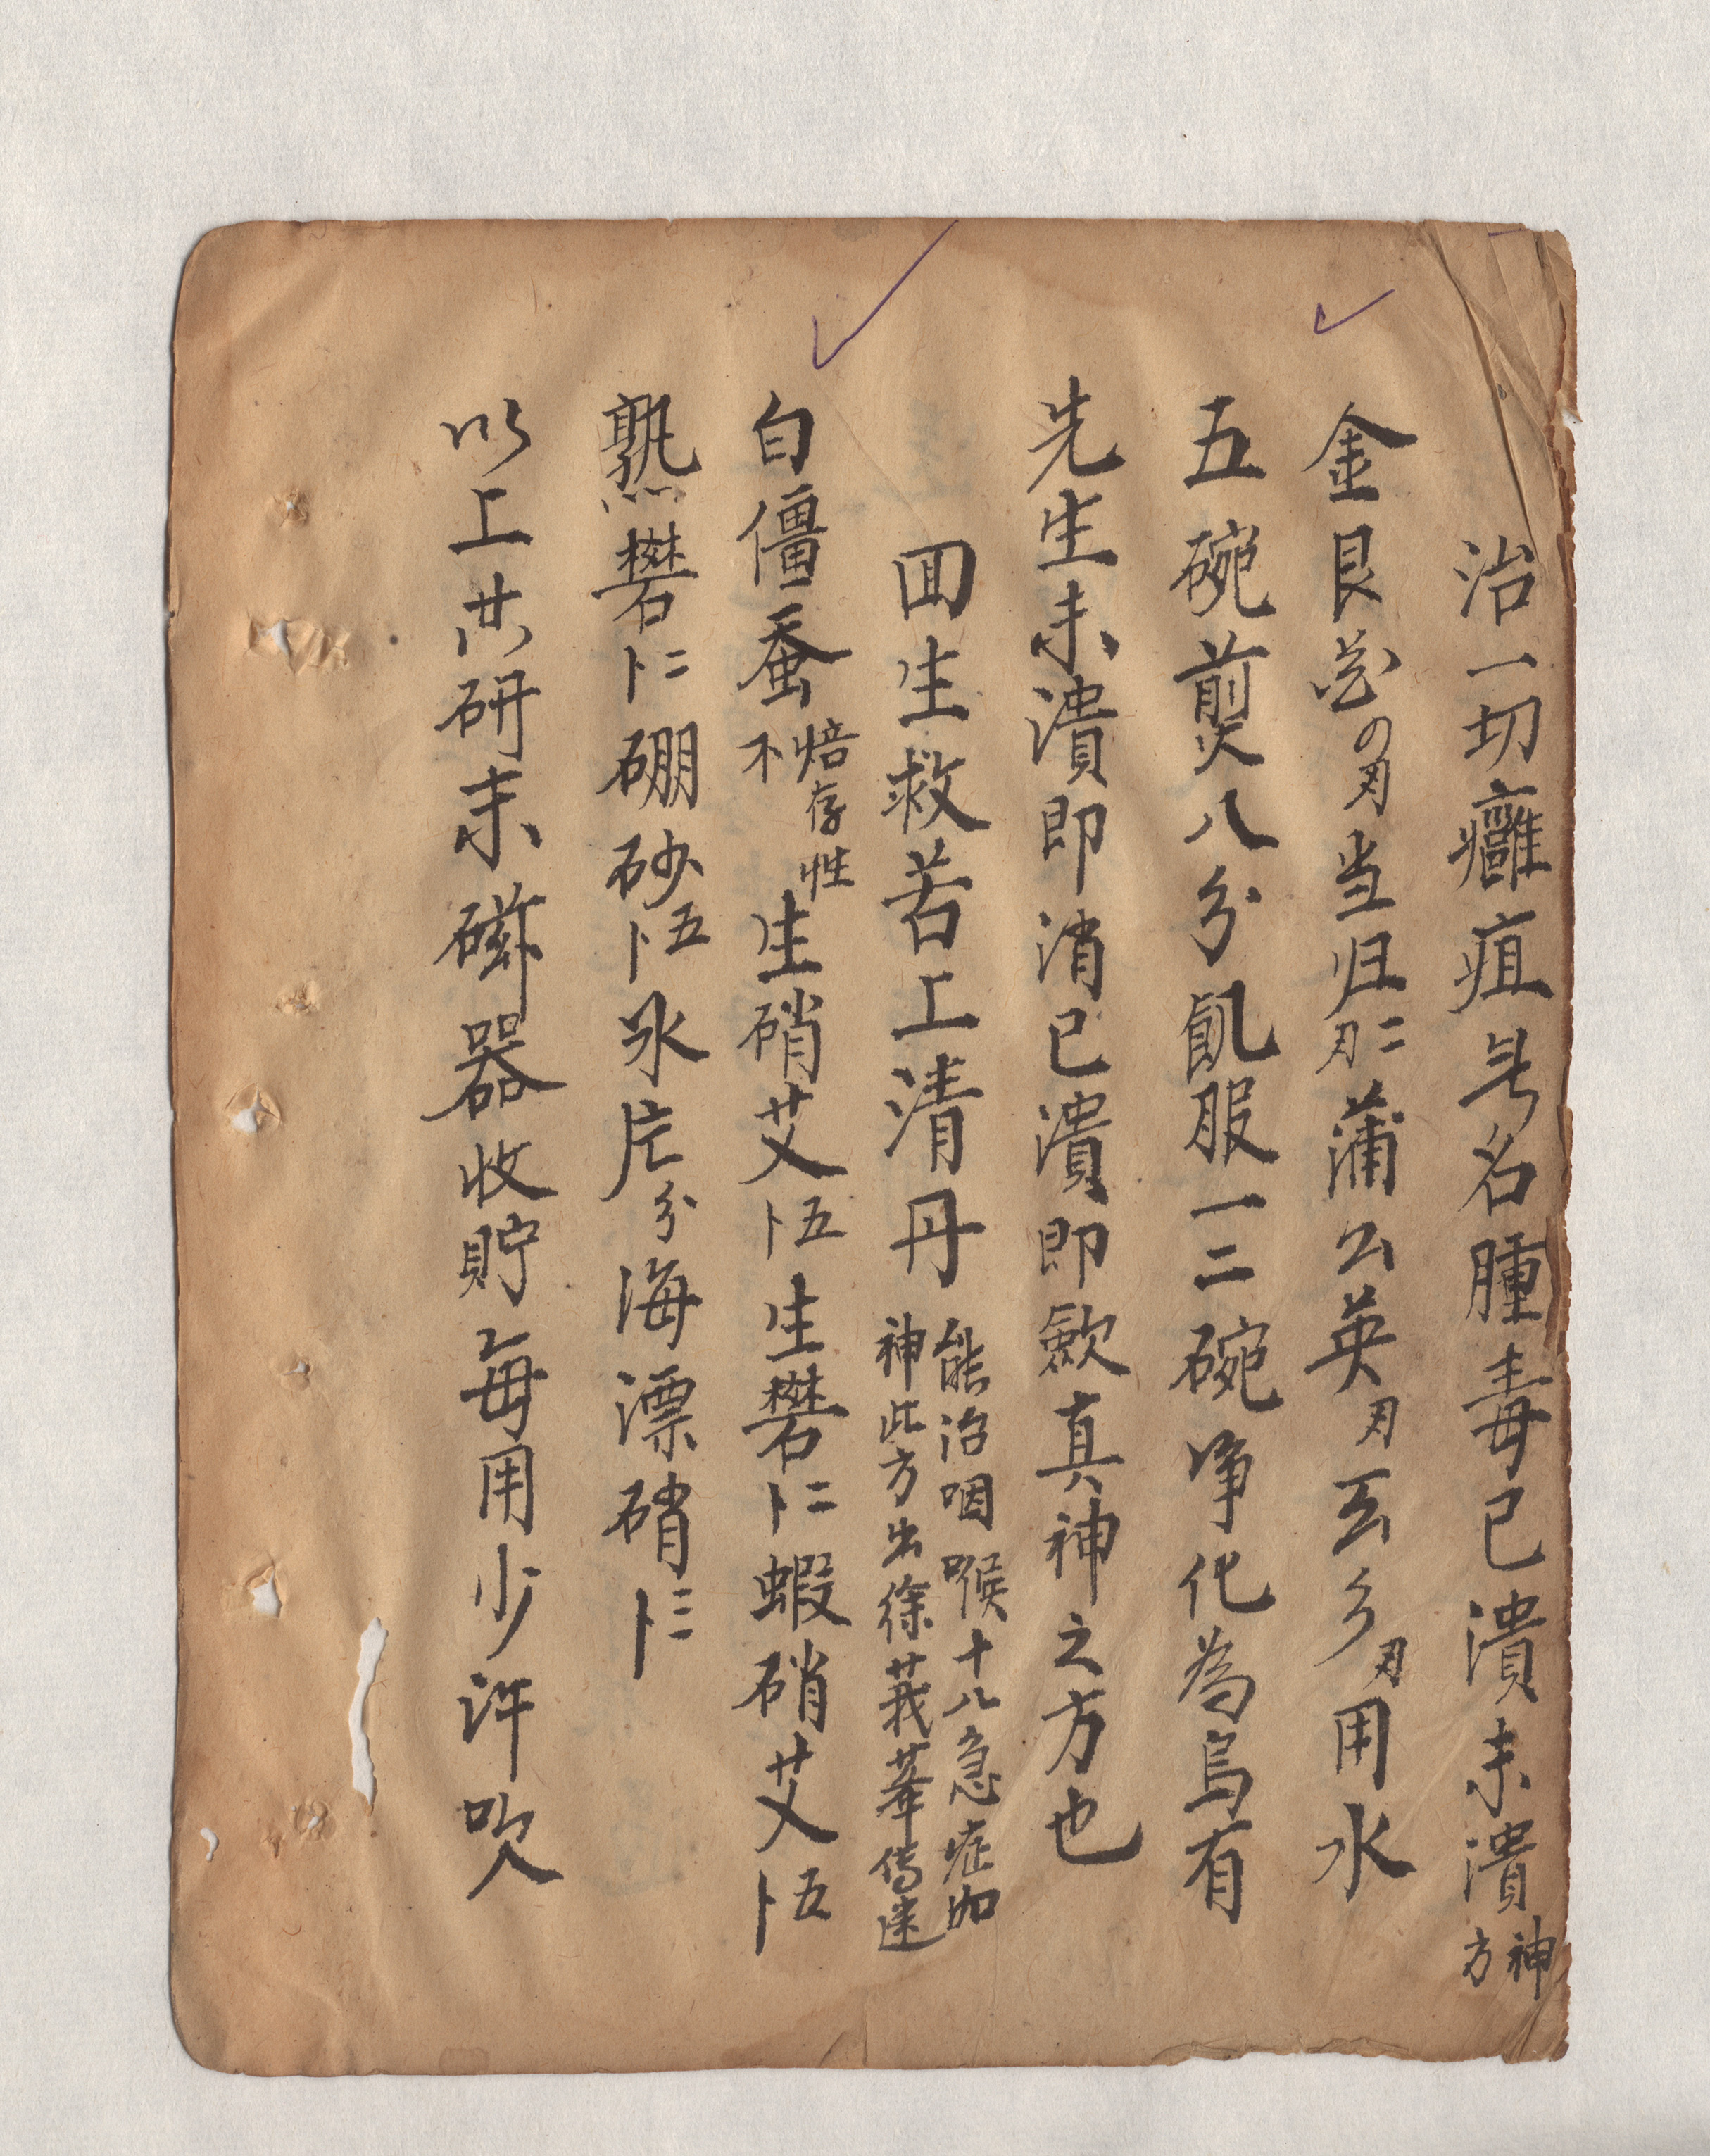 治一切癰疽无名腫毒已潰未潰神方
金艮花の刄当归二刄蒲公英刄玄参刄用水
五碗煎八分飢服一二碗净化為烏有
先生未潰即消已潰即歛真神之方也
囬生救苦上清丹能治咽喉十八急症如
神此方出徐莪峯傳速
白僵蚕焙存性不生硝艾卜五生礬卜二蝦硝艾卜五
熟礬卜二硼砂卜五氷片分海漂硝卜三
以上共研末磁器收貯每用少許吹